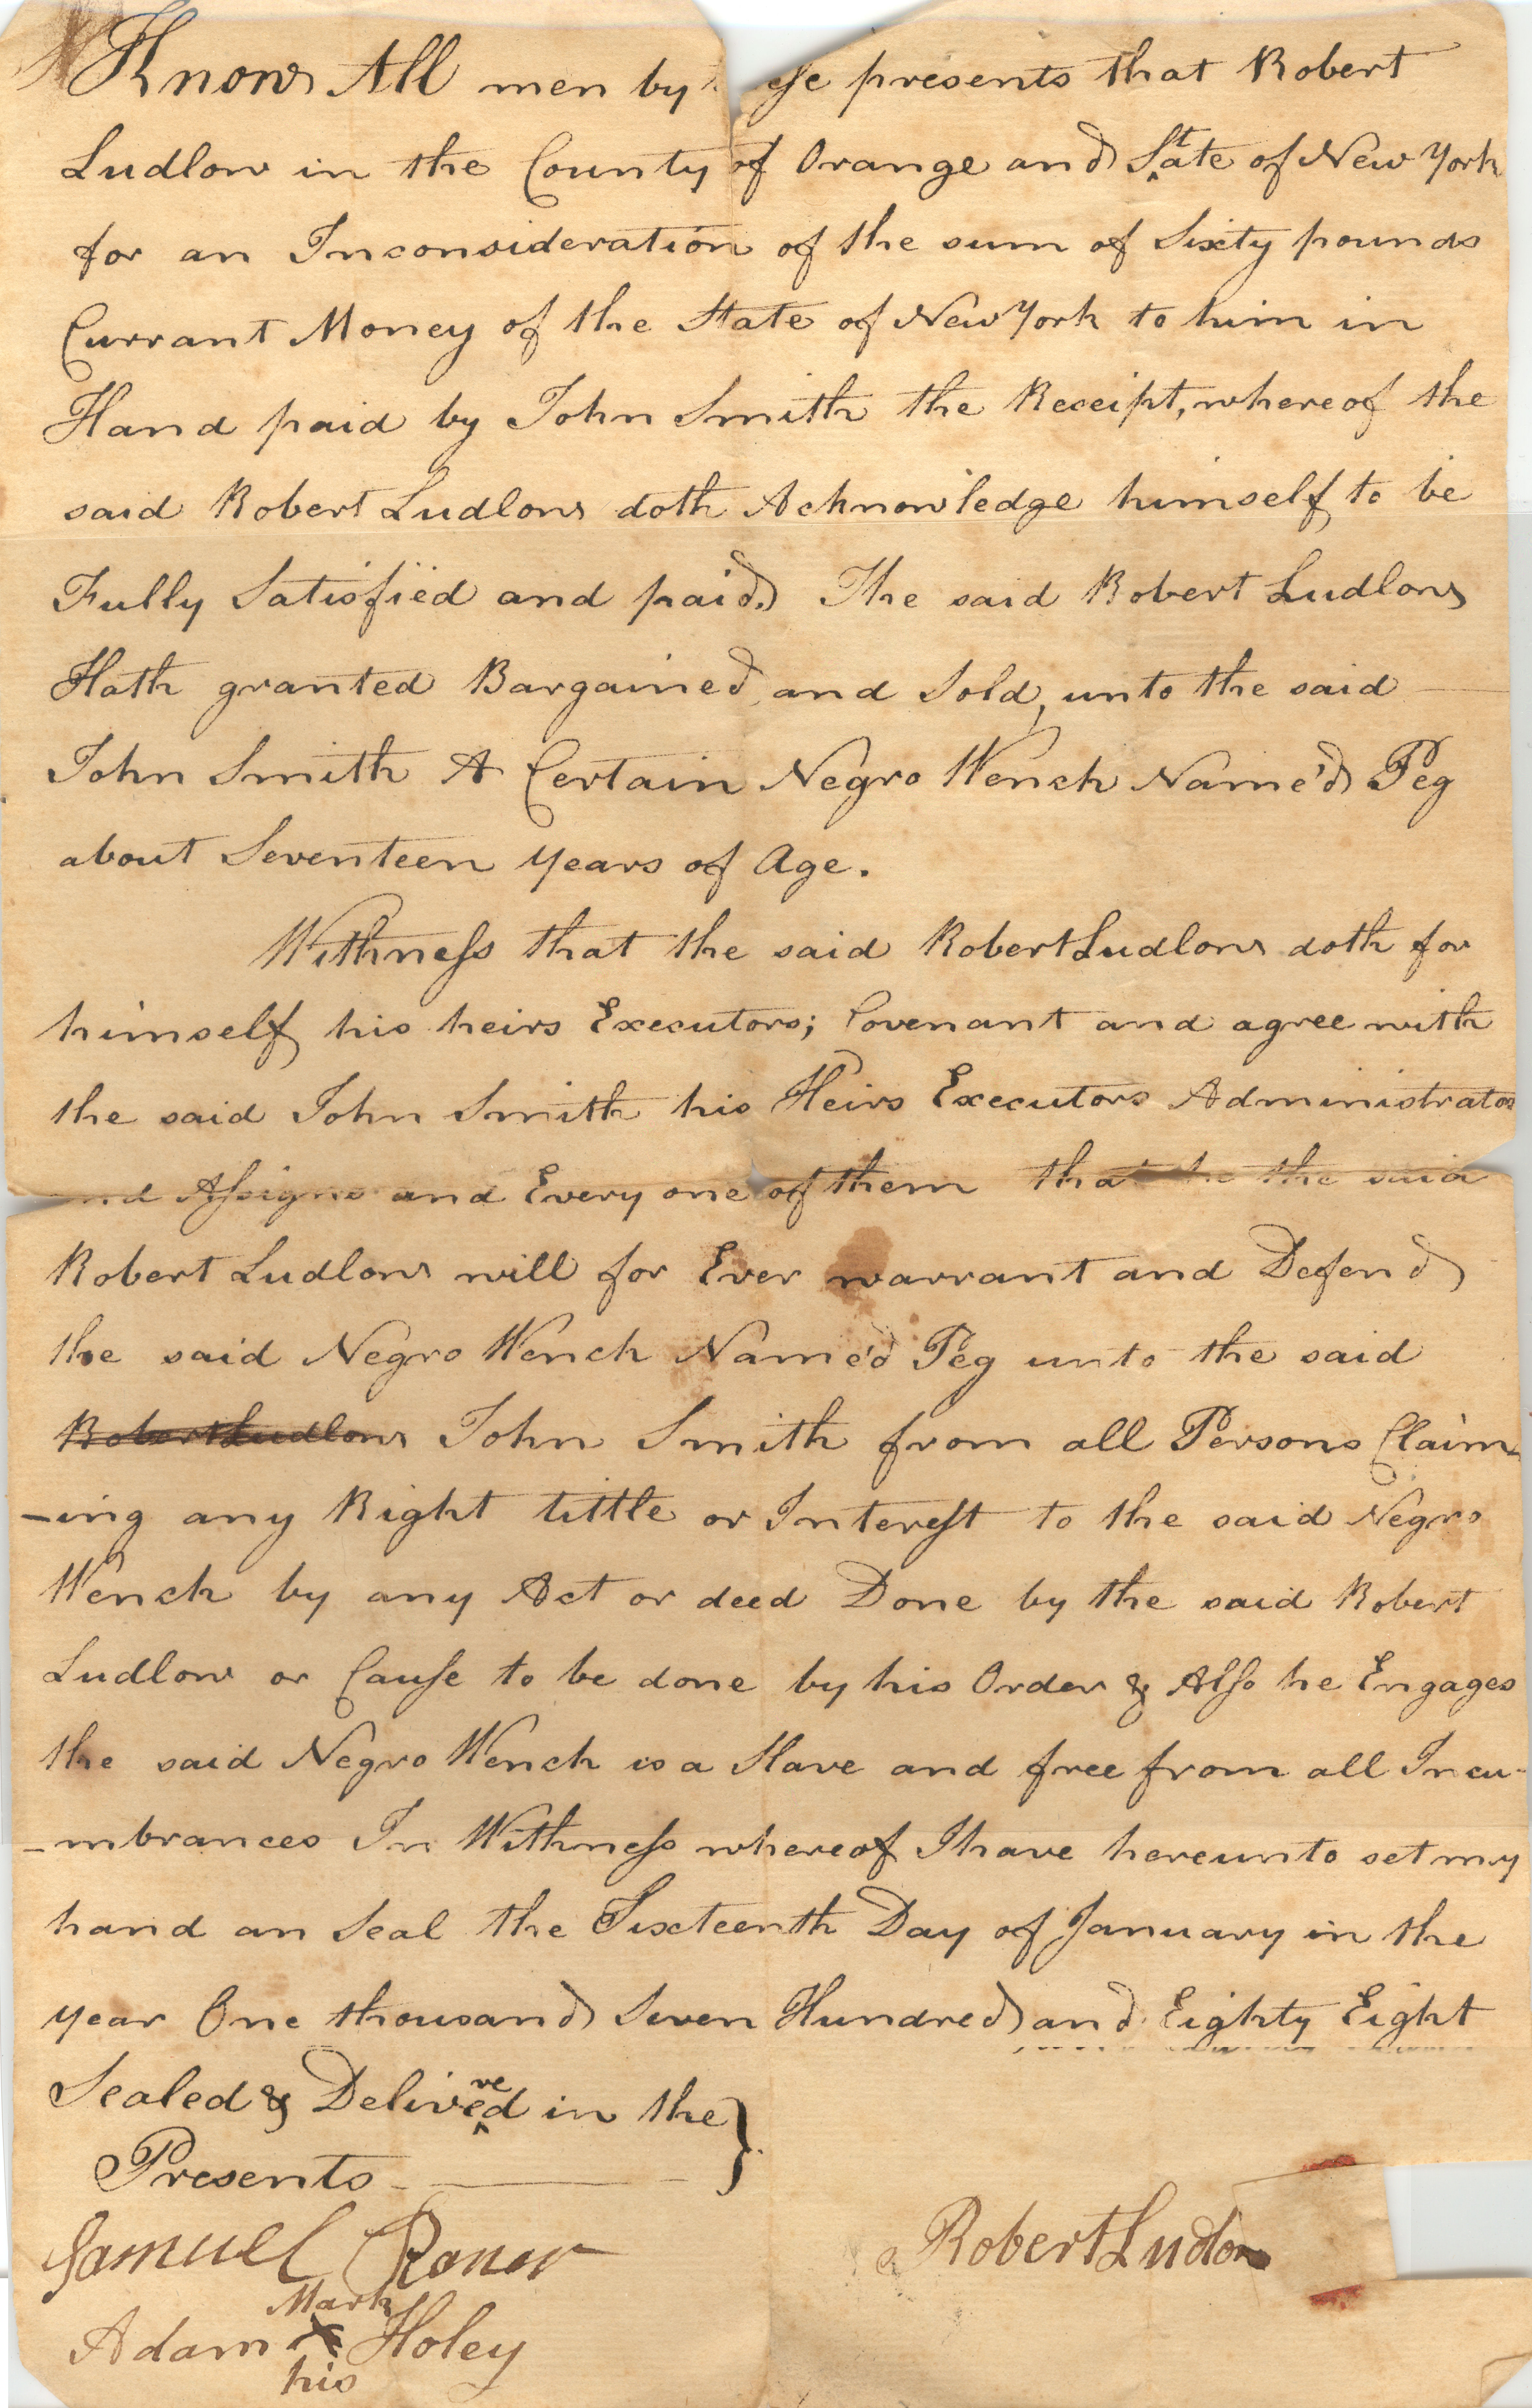 Know All men by ese presents that Robert
Ludlow in the County of Orange and State of New York
for an Inconsideration of the sum of Sixty pounds
Currant Money of the State of New York to him in
Hand paid by John Smith the Receipt, whereof the
said Robert Ludlow doth Acknowledge himself to be
Fully Satisfied and paid. The said Robert Ludlow
Hath granted Bargained and Sold, unto the said
John Smith A Certain Negro Wench Name'd Peg
about Seventeen years of Age.
Withness that the said Robert Ludlow doth for
himself his heirs Executors; Covenant and agree with
the said John Smith his Heirs Executors Administrators
and Assigns and Every one of them that he the said
Robert Ludlow will for Ever warrant and Defend
the said Negro Wench Name'd Peg unto the said
Robert Ludlow John Smith from all Persons Claim-
-ing any Right tittle or Interest to the said Negro
Wench by any Act or deed Done by the said Robert
Ludlow or Cause to be done by his Order & Also he Engages
the said Negro Wench is a Slave and free from all Incu-
-mbrances In Withness whereof I have hereunto set my
hand an Seal the Sixteenth Day of January in the
year One thousand Seven Hundred and Eighty Eight
Sealed & Delivered in the
Presents
Samuel
Mark
Adam X Holey
his
Robert Ludlow